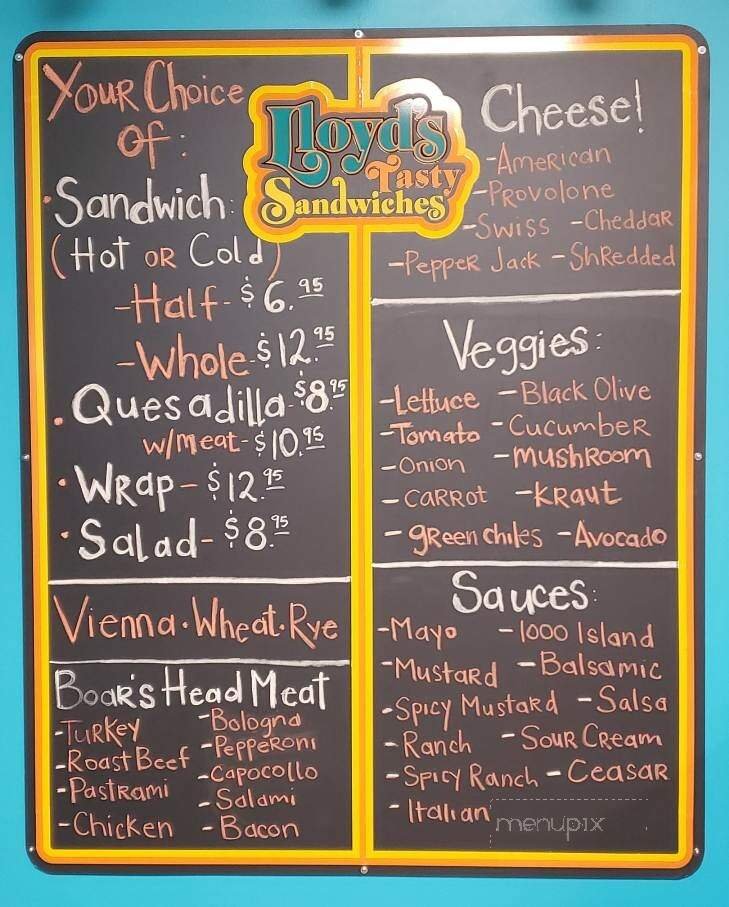 Your Choice
of:
Lloyd's
Tasty
Sandwiches
• Sandwich:
(Hot or Cold)
-Half- $6.95
-Whole-$12.95
• Quesadilla-$8.95
w/meat-$10.95
• Wrap-$12.95
• Salad-$8.95
Vienna•Wheat•Rye
Boar's Head Meat
-Turkey -Bologna
-Roast Beef -Pepperoni
-Pastrami -Capocollo
-Chicken -Salami
-Bacon
Cheese!
-American
-Provolone
-Swiss -Cheddar
-Pepper Jack -Shredded
Veggies:
-Lettuce -Black Olive
-Tomato -Cucumber
-Onion -mushroom
-carrot -kraut
-green chiles -Avocado
Sauces:
-Mayo -1000 Island
-Mustard -Balsamic
-Spicy Mustard -Salsa
-Ranch -Sour Cream
-Spicy Ranch -Ceasar
-Italian
menupix